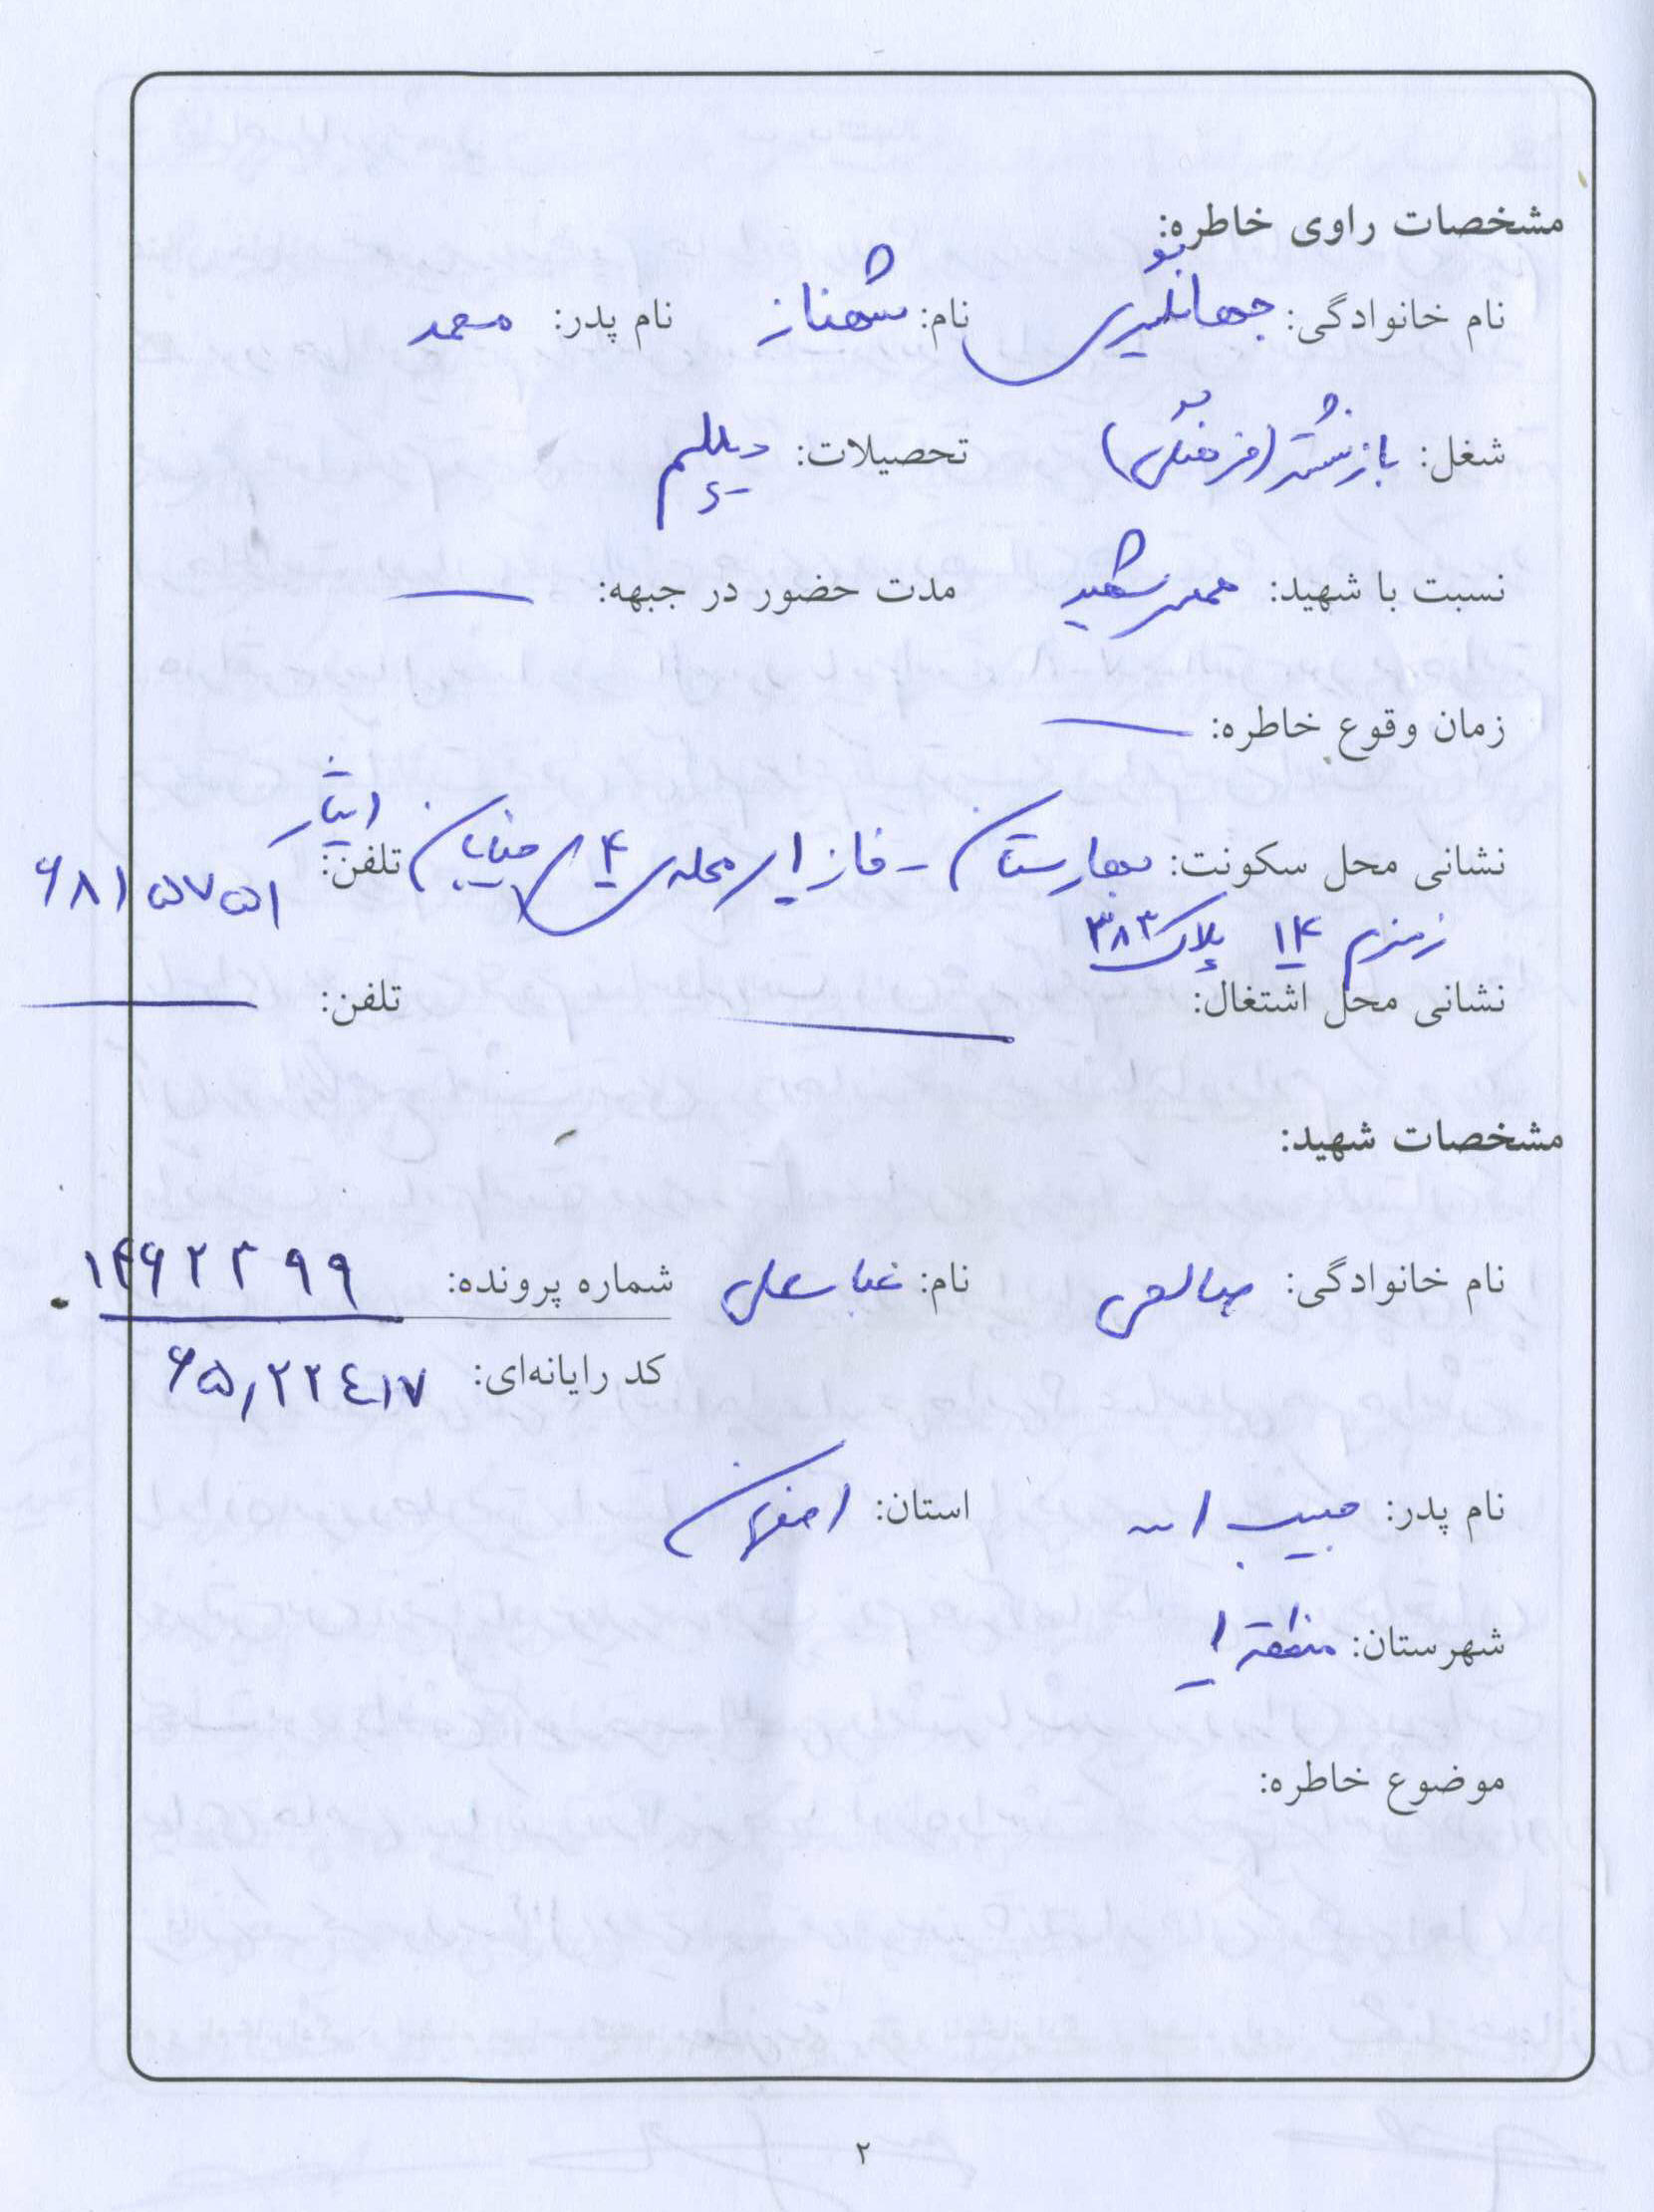 مشخصات راوی خاطره:
نام خانوادگی: جهانگیری نام: شهناز نام پدر: محمد
شغل: بازنشسته (فرهنگی) تحصیلات: دیپلم
نسبت با شهید: همسر شهید مدت حضور در جبهه: —
زمان وقوع خاطره: —
نشانی محل سکونت: بهارستان - فاز ۱ محله‌ی ۴ خیابان ایثار تلفن: ۶۸۱۵۷۵۱
زمزم ۱۴ پلاک ۳۸۳
نشانی محل اشتغال: — تلفن: —
مشخصات شهید:
نام خانوادگی: صالحی نام: عباسعلی شماره پرونده: ۱۴۶۲۲۹۹
کد رایانه‌ای: ۶۵۱۲۲٤۱۷
نام پدر: حبیب اله استان: اصفهان
شهرستان: منطقه ۱
موضوع خاطره:
۲